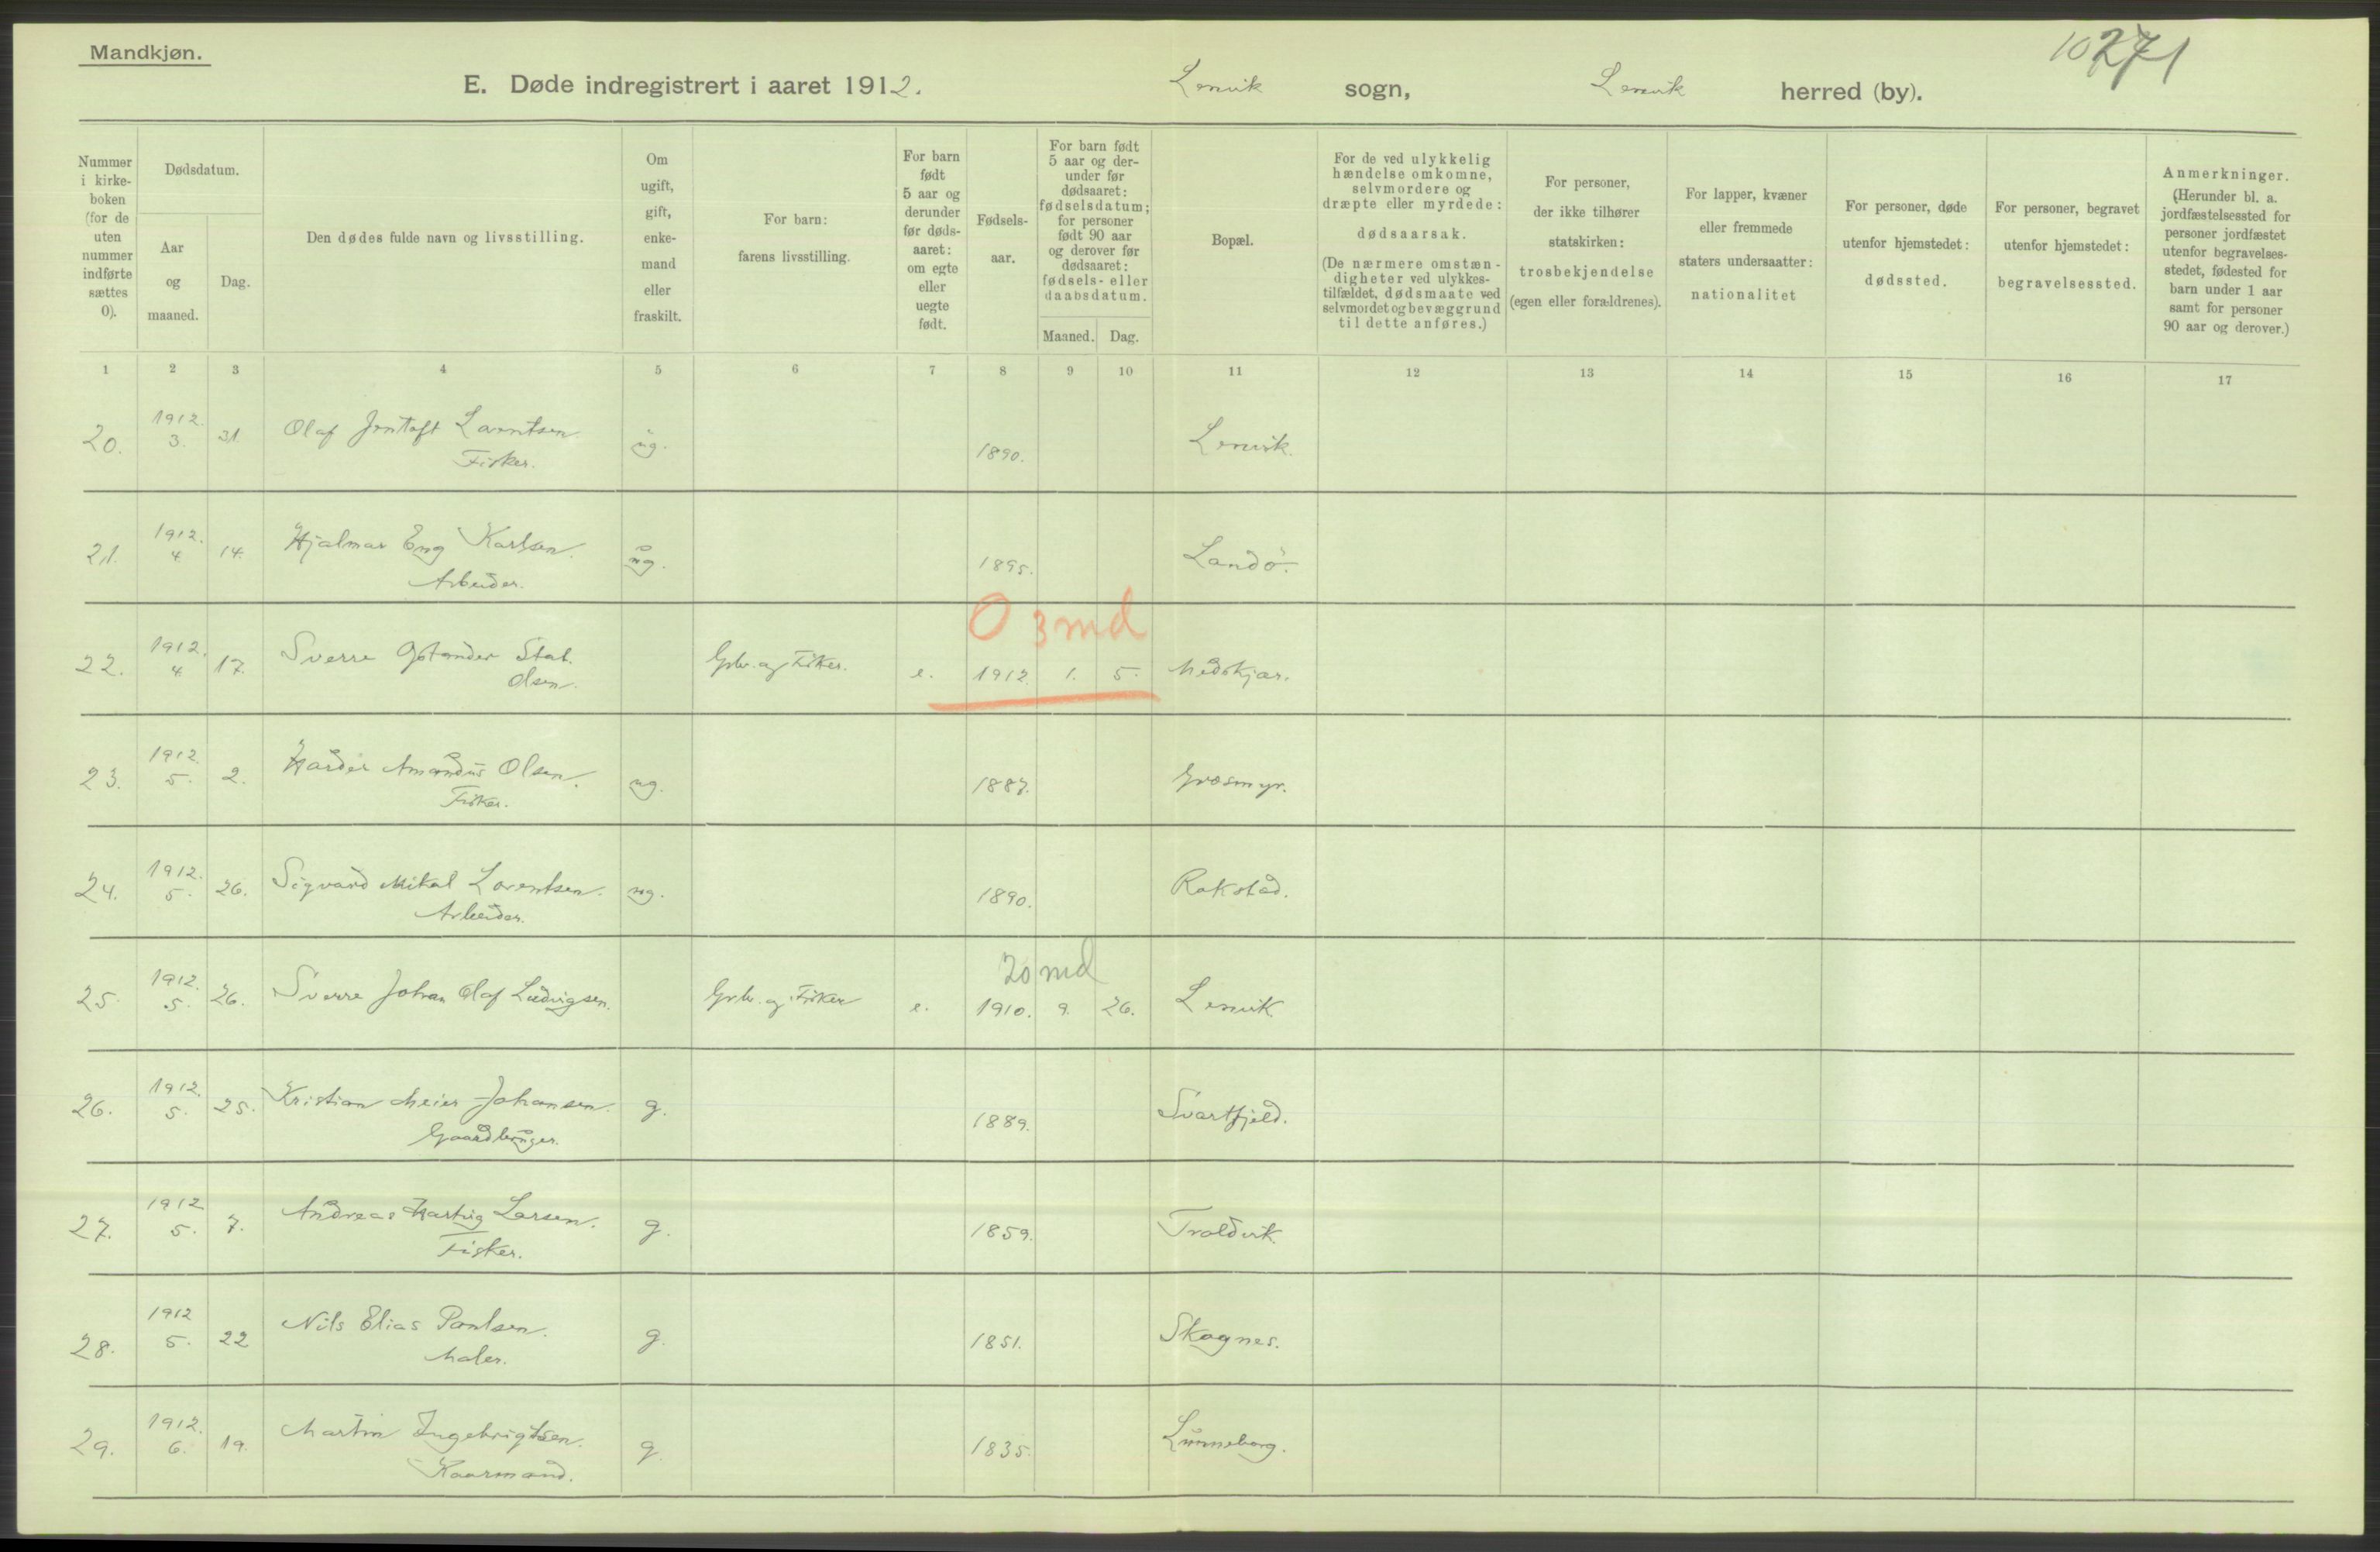 Mandkjøn.
10271
E. Døde indregistrert i aaret 1912. Lenvik sogn, Lenvik herred (by).
Nummer
i kirke-
boken
(for de
uten
nummer
indførte
sættes
0).
Dødsdatum.
Aar
og
maaned.
Dag.
Den dødes fulde navn og livsstilling.
Om
ugift,
gift,
enke-
mand
eller
fraskilt.
For barn:
farens livsstilling.
For barn
født
5 aar og
derunder
før døds-
aaret:
om egte
eller
uegte
født.
Fødsels-
aar.
For barn født
5 aar og der-
under før
dødsaaret:
fødselsdatum;
for personer
født 90 aar
og derover før
dødsaaret:
fødsels- eller
daabsdatum.
Maaned. Dag.
Bopæl.
For de ved ulykkelig
hændelse omkomne,
selvmordere og
dræpte eller myrdede:
dødsaarsak.
(De nærmere omstæn-
digheter ved ulykkes-
tilfældet, dødsmaate ved
selvmordet og bevæggrund
til dette anføres.)
For personer,
der ikke tilhører
statskirken:
trosbekjendelse
(egen eller forældrenes).
For lapper, kvæner
eller fremmede
staters undersaatter:
nationalitet
For personer, døde
utenfor hjemstedet:
dødssted.
For personer, begravet
utenfor hjemstedet:
begravelsessted.
Anmerkninger.
(Herunder bl. a.
jordfæstelsessted for
personer jordfæstet
utenfor begravelses-
stedet, fødested for
barn under 1 aar
samt for personer
90 aar og derover.)
1 2 3 4 5 6 7 8 9 10 11 12 13 14 15 16 17
1912.
20. 3. 31. Olaf Lorentsen ug. 1890. Lenvik.
Fisker.
1912.
21. 4 14. Hjalmar Eng Karlsen. ug. 1895. Landø.
Arbeider.
0 3 md
1912.
22. 4 17. Sverre Stab. Grbr. og Fisker. e. 1912. 1. 5.
Olsen.
1912.
23. 5. 2. Harder Amandus Olsen. ug. 1887. Græsmyr.
Fisker.
1912.
24. 5. 26. Sigvard Mikal Lorentsen. ug. 1890. Rakstad.
Arbeider.
20 md
1912.
25. 5. 26. Sverre Johan Olaf Ludvigsen. Grbr. og Fisker e. 1910. 9. 26. Lenvik
1912.
26. 5. 25. Kristian Meier Johansen. g. 1889. Svartfjeld.
Gaardbruger.
1912
27. 5. 7. Andreas Hartvig Larsen. g. 1859. Troldvik.
Fisker.
1912
28. 5. 22 Nils Elias Paulsen. g. 1851. Skognes.
Maler.
1912.
29. 6. 19. Martin Ingebrigtsen. g. 1835. Lunneborg.
Kaarmand.